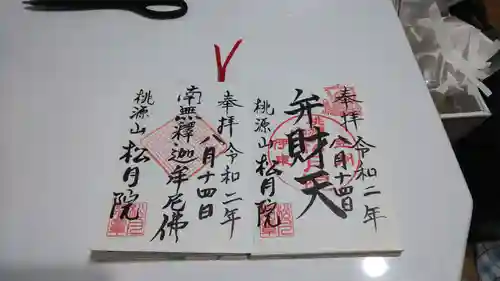 奉拝
令和二年
八月十四日
弁財天
桃源山
松月院
奉拝
令和二年
八月十四日
南無釋迦牟尼佛
桃源山
松月院